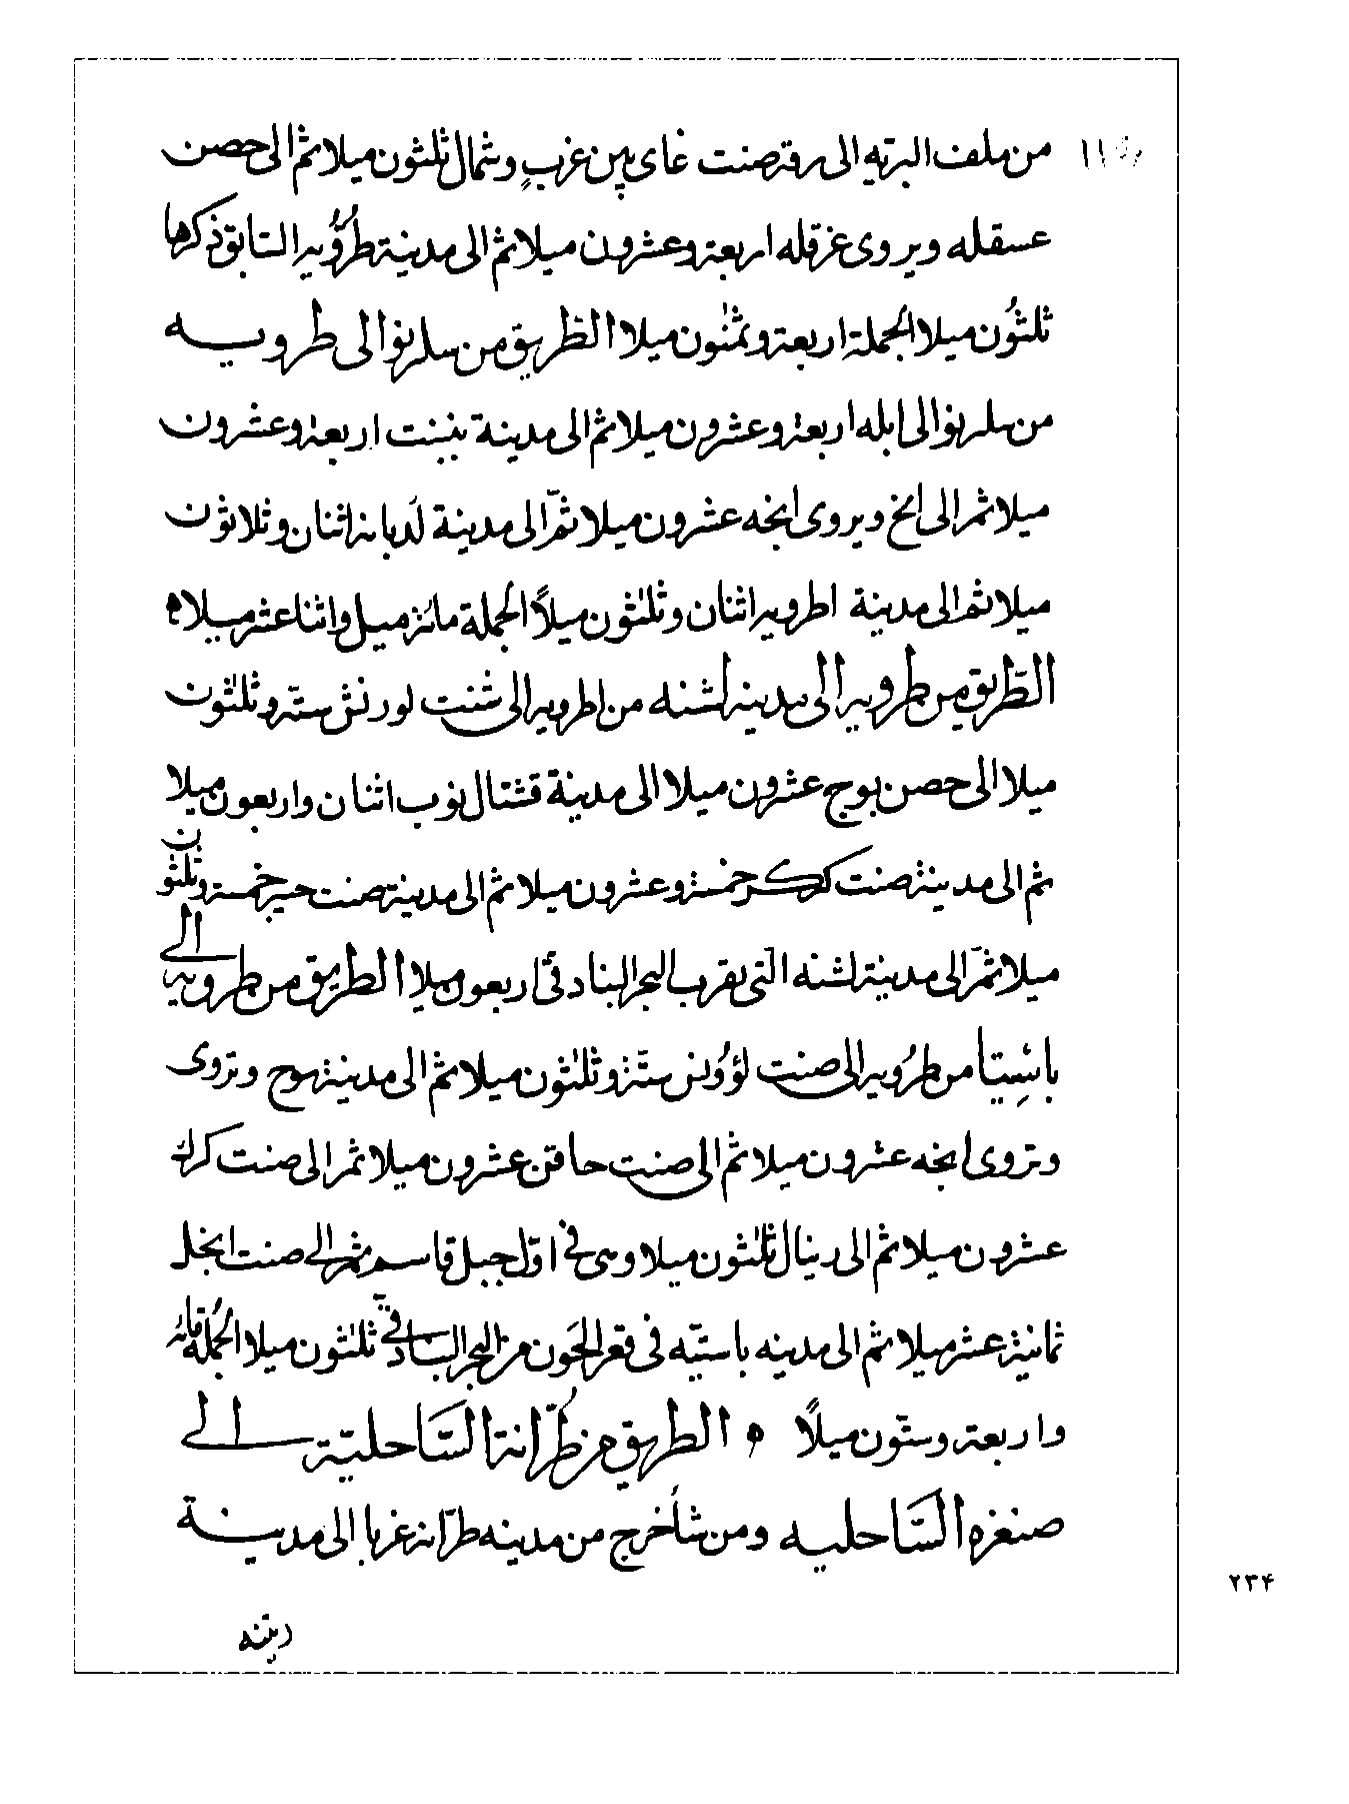 من ملف البريه الى رقرصنت غاى بين غرب وشمال ثلثون ميلا ثم الى حصن
عسقله ويروى غزقله اربعة وعشرون ميلا ثم الى مدينة طرؤيه السابق ذكرها
ثلثون ميلا الجملة اربعة وثمنون ميلا الطريق من سلرنو الى طرويــه
من سلرنو الى ابله اربعة وعشرون ميلا ثم الى مدينة بنبنت اربعة وعشرون
ميلا ثم الى ابخ ويروى ابخه عشرون ميلا ثم الى مدينة لدبانه اثنان وثلاثون
ميلا ثم الى مدينة اطرويه اثنان وثلثون ميلاً الجملة مائة ميل واثنا عشر ميلا ه
الطريق من طرويه الى مدينة لشنه من اطرويه الى شنت لورنش ستة وثلثون
ميلا الى حصن بوج عشرون ميلا الى مدينة قشتال نوب اثنان واربعون ميلا
ثم الى مدينة صنت كركر خمسة وعشرون ميلا ثم الى مدينة صنت خمسة وثلثون
ميلا ثم الى مدينة لشنه التى بقرب البحر البنادقى اربعون ميلا الطريق من طرويه الى
بائستيا من طرويه الى صنت لؤونس ستة وثلثون ميلا ثم الى مدينة بوج وتروى
وتروى ابخه عشرون ميلا ثم الى صنت حاقن عشرون ميلا ثم الى صنت كرك
عشرون ميلا ثم الى رينال ثلثون ميلا وهى فى اول جبل قاسم ثم الى صنت انجل
ثمانية عشر ميلا ثم الى مدينه باستيه فى قعر الجون من البحر البنادقى ثلثون ميلا الجملة مائة
واربعة وستون ميلاً ه الطريق من طرّانة السّاحليّة الى
صنغزه السّاحليه ومن شأ خرج من مدينه طرّانه غربا الى مدينــة
ريتنه
٢٣۴